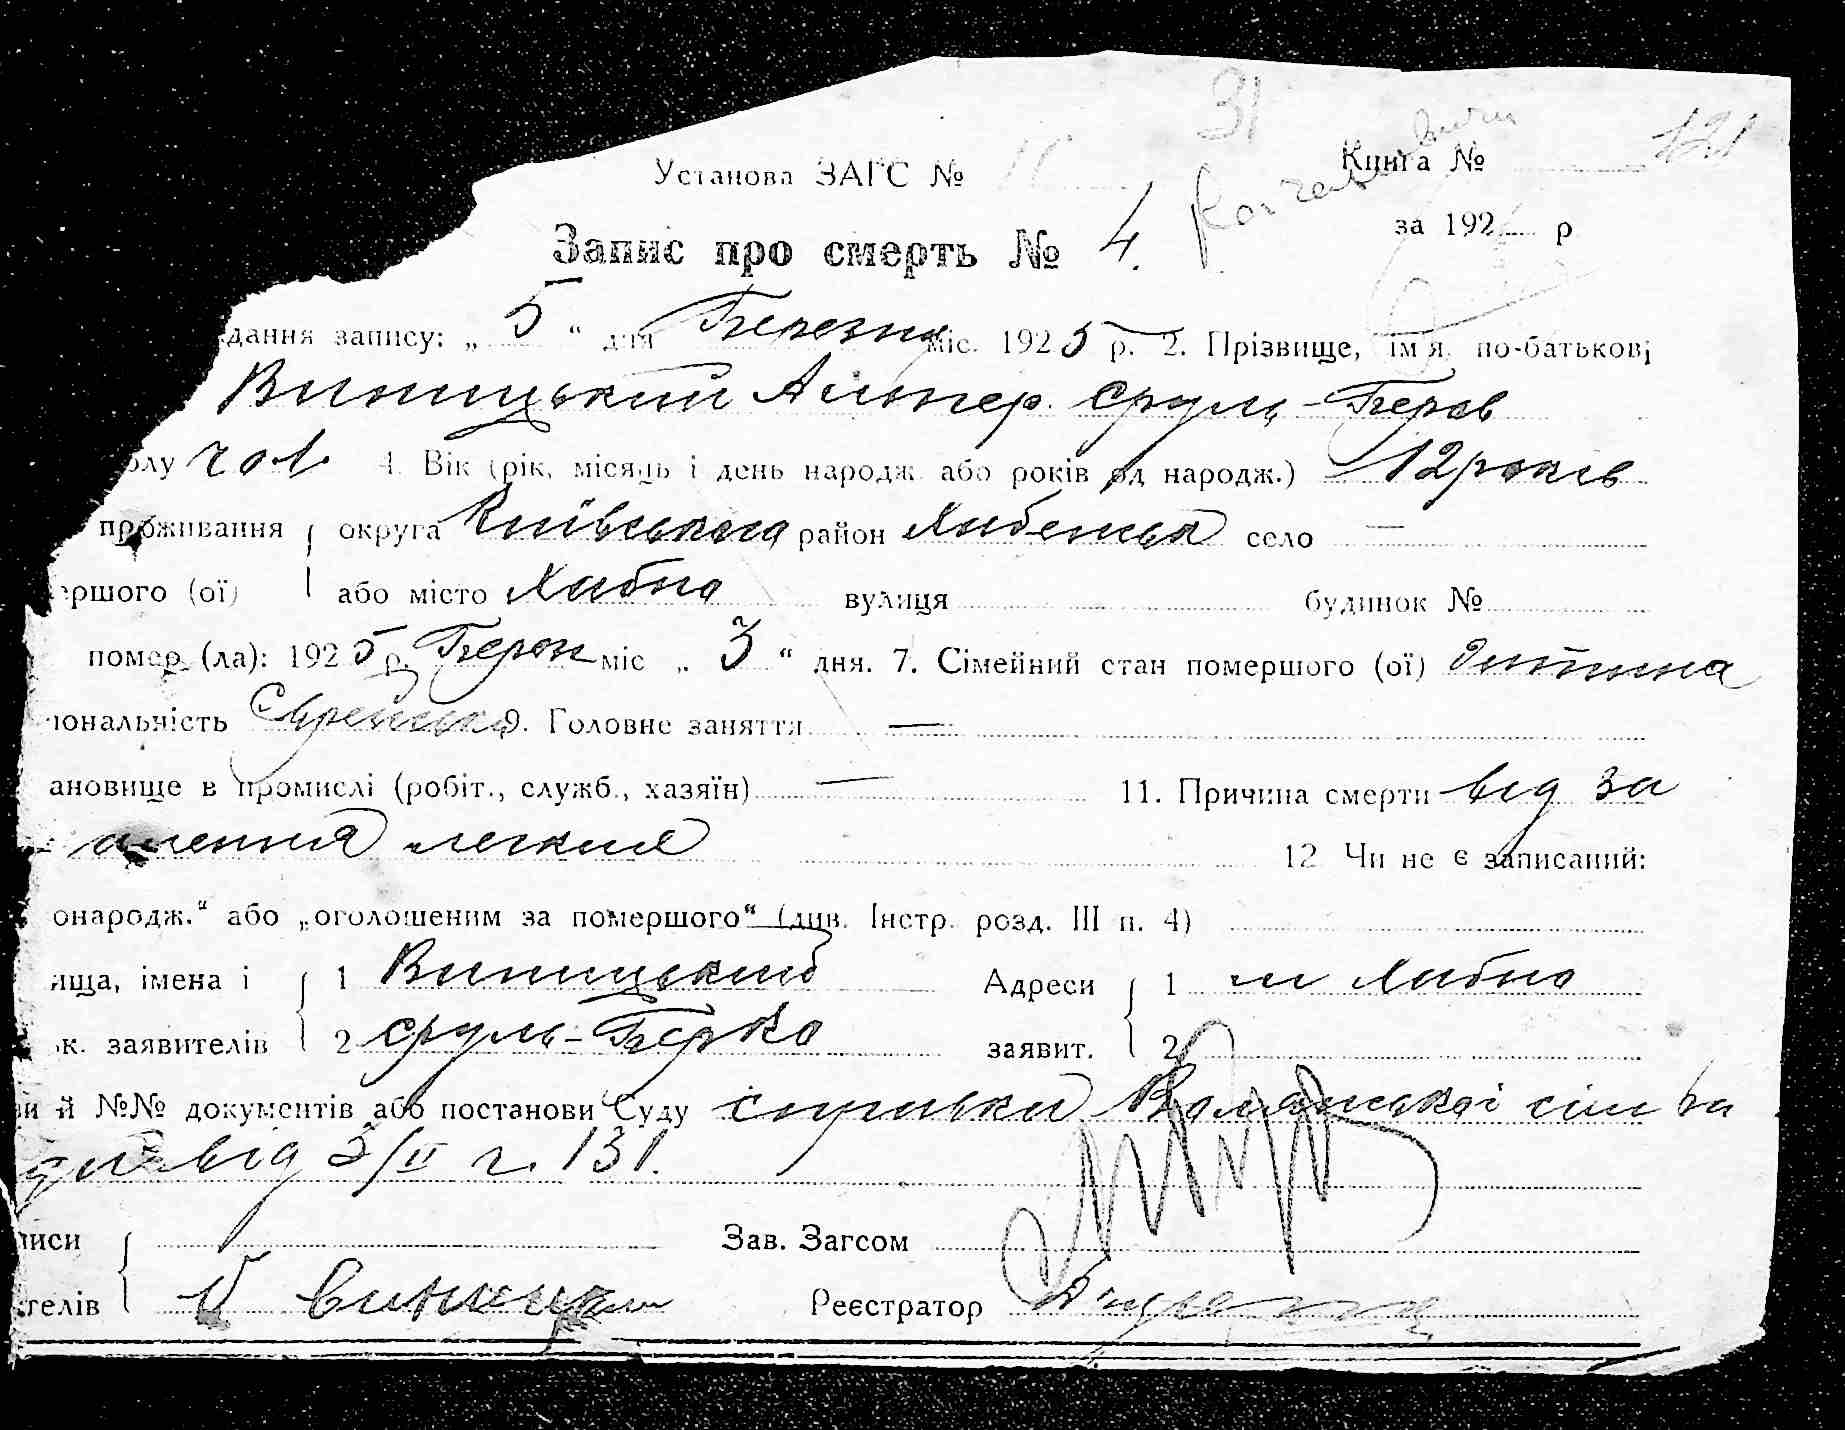 31
Установа ЗАГС № Книга № 121
за 192 р
Запис про смерть № 4.
дання запису: „ 5 “ дня Березня міс. 1925 р. 2. Прізвище, ім'я, по-батькові
Виницький Сруль-Беров
олу чол. 4. Вік (рік, місяць і день народж. або років од народж.) 12 років
проживання округа Київська район село —
ершого (ої) або місто Хабно вулиця будинок №
помер (ла): 1925 р. міс „ 3 “ дня. 7. Сімейний стан померш​ого (ої) дитина
іональність Єврейська 9. Головне заняття —
ановище в промислі (робіт., служб., хазяїн) — 11. Причина смерти від за
алення легкия
12 Чи не є записаний:
онародж.“ або „оголошеним за помершого“ (див. Інстр. розд. III п. 4)
ища, імена і 1 Виницький Адреси 1 м Хабно
ьк. заявителів 2 Сруль-Берко заявит. 2
ви й №№ документів або постанови Суду
від 3/II ч. 131.
писи Зав. Загсом
телів Реєстратор